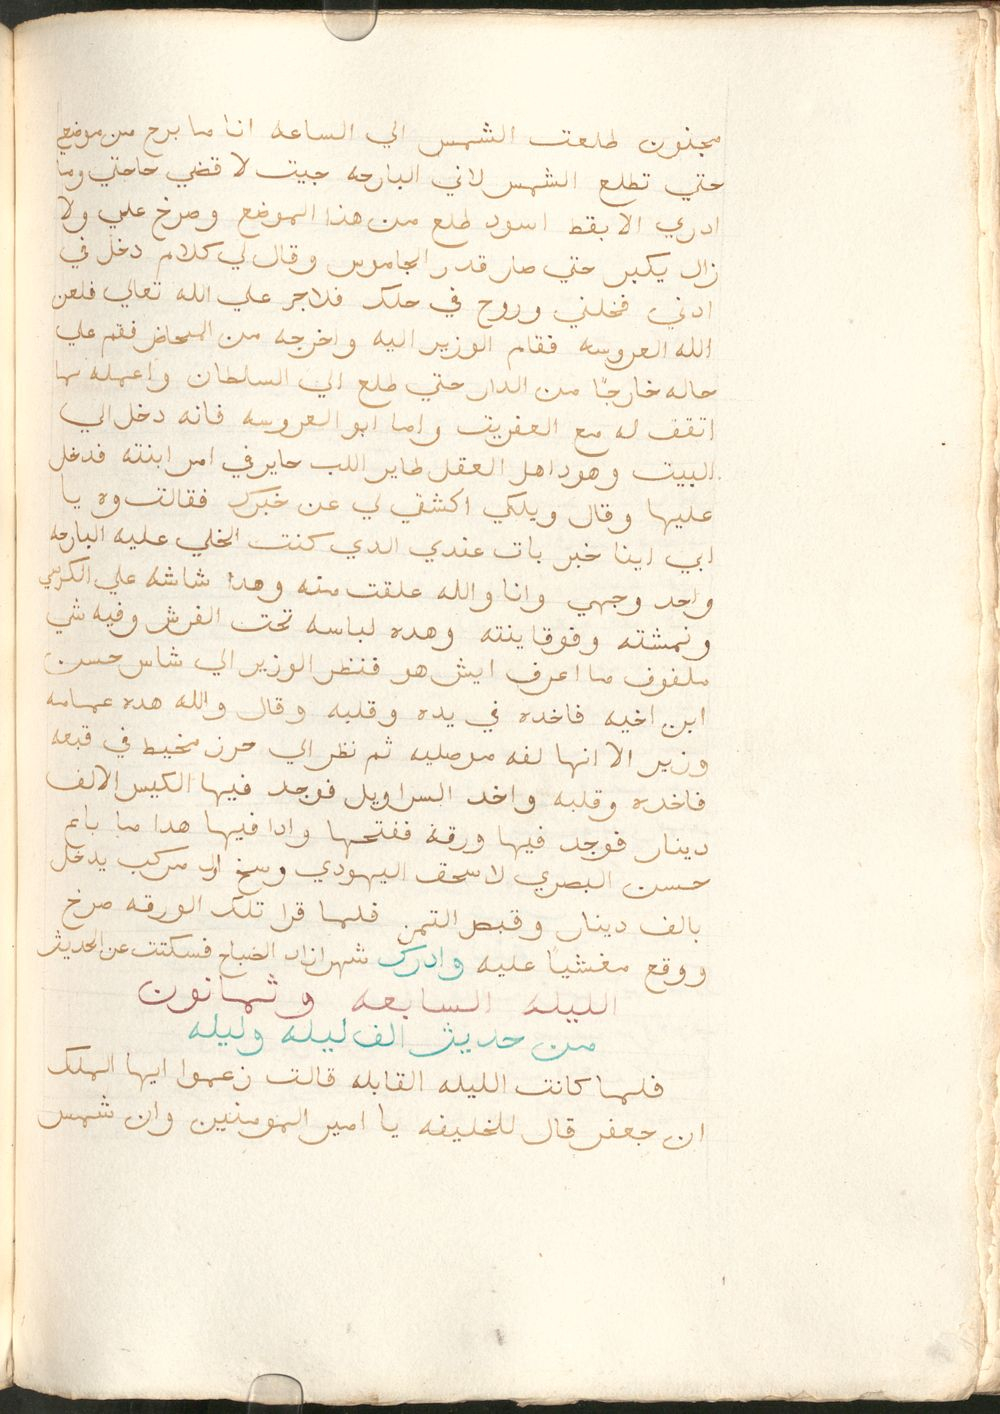 مجنون طلعت الشمس الي الساعه انا ما برح من موضعي
حتي تطلع الشمس لاني البارحه جيت لا قضي حاجتي وما
ادري الا بقط اسود طلع من هذا الموضع وصرخ علي ولا
زال يكبر حتي صار قدر الجاموس وقال لي كلام دخل في
ادني فخلني وروح في حلك فلاجر علي الله تعالي فلعن
الله العروسه فقام الوزير اليه واخرجه من المحاض فقم علي
حاله خارجًا من الدار حتي طلع الي السلطان واعمله بما
اتقف له مع العفريت واما ابو العروسه فانه دخل الي
البيت وهو داهل العقل طاير اللب حاير في امر ابنته فدخل
عليها وقال ويلكي اكشفي لي عن خبرك فقالت وه يا
ابي اينا خبر بات عندي الدي كنت الخلي عليه البارحه
واخد وجهي وانا والله علقت منه وهدا شاشه علي الكرسي
ونمشته وفوقاينته وهده لباسه تحت الفرش وفيه شي
ملفوف ما اعرف ايش هو فنظر الوزير الي شاس حسن
ابن اخيه فاخده في يده وقلبه وقال والله هده عمامه
وزير الا انها لفه موصليه ثم نظر الي حرز مخيط في قبعه
فاخده وقلبه واخد السراويل فوجد فيها الكيس الالف
دينار فوجد فيها ورقة ففتحها وادا فيها هدا ما باع
حسن البصري لاسحق اليهودي وسخ اول مركب يدخل
بالف دينار وقبص التمن فلما قرا تلك الورقه صرخ
ووقع مغشياً عليه وادرك شهرازاد الصباح فسكتت عن الحديث
الليله السابعه وثمانون
من حديث الف ليله وليله
فلما كانت الليله القابله قالت زعموا ايها الملك
ان جعفر قال للخليفه يا امير المومنين وان شمس